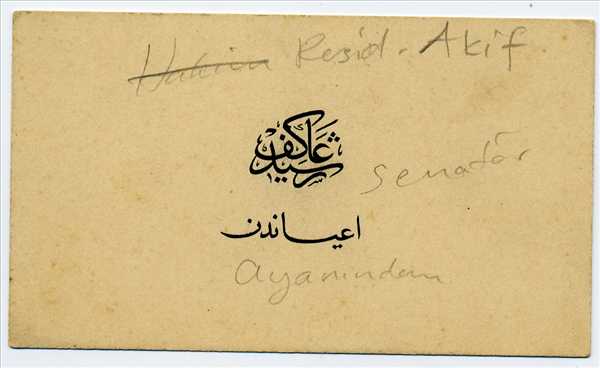 Hakima Resid. Akif
رشيد عاكف
senatör
اعياندن
ayanindan